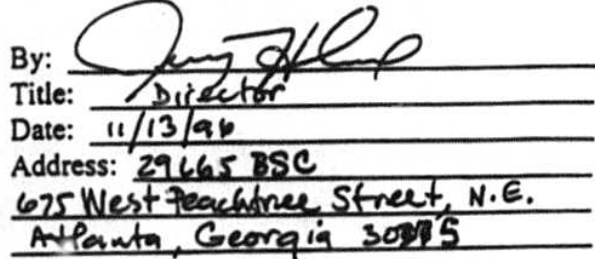 By: Jerry H
Title: Director
Date: 11/13/96
Address: 29665 BSC
675 West Peachtree Street, N.E.
Atlanta, Georgia 30375